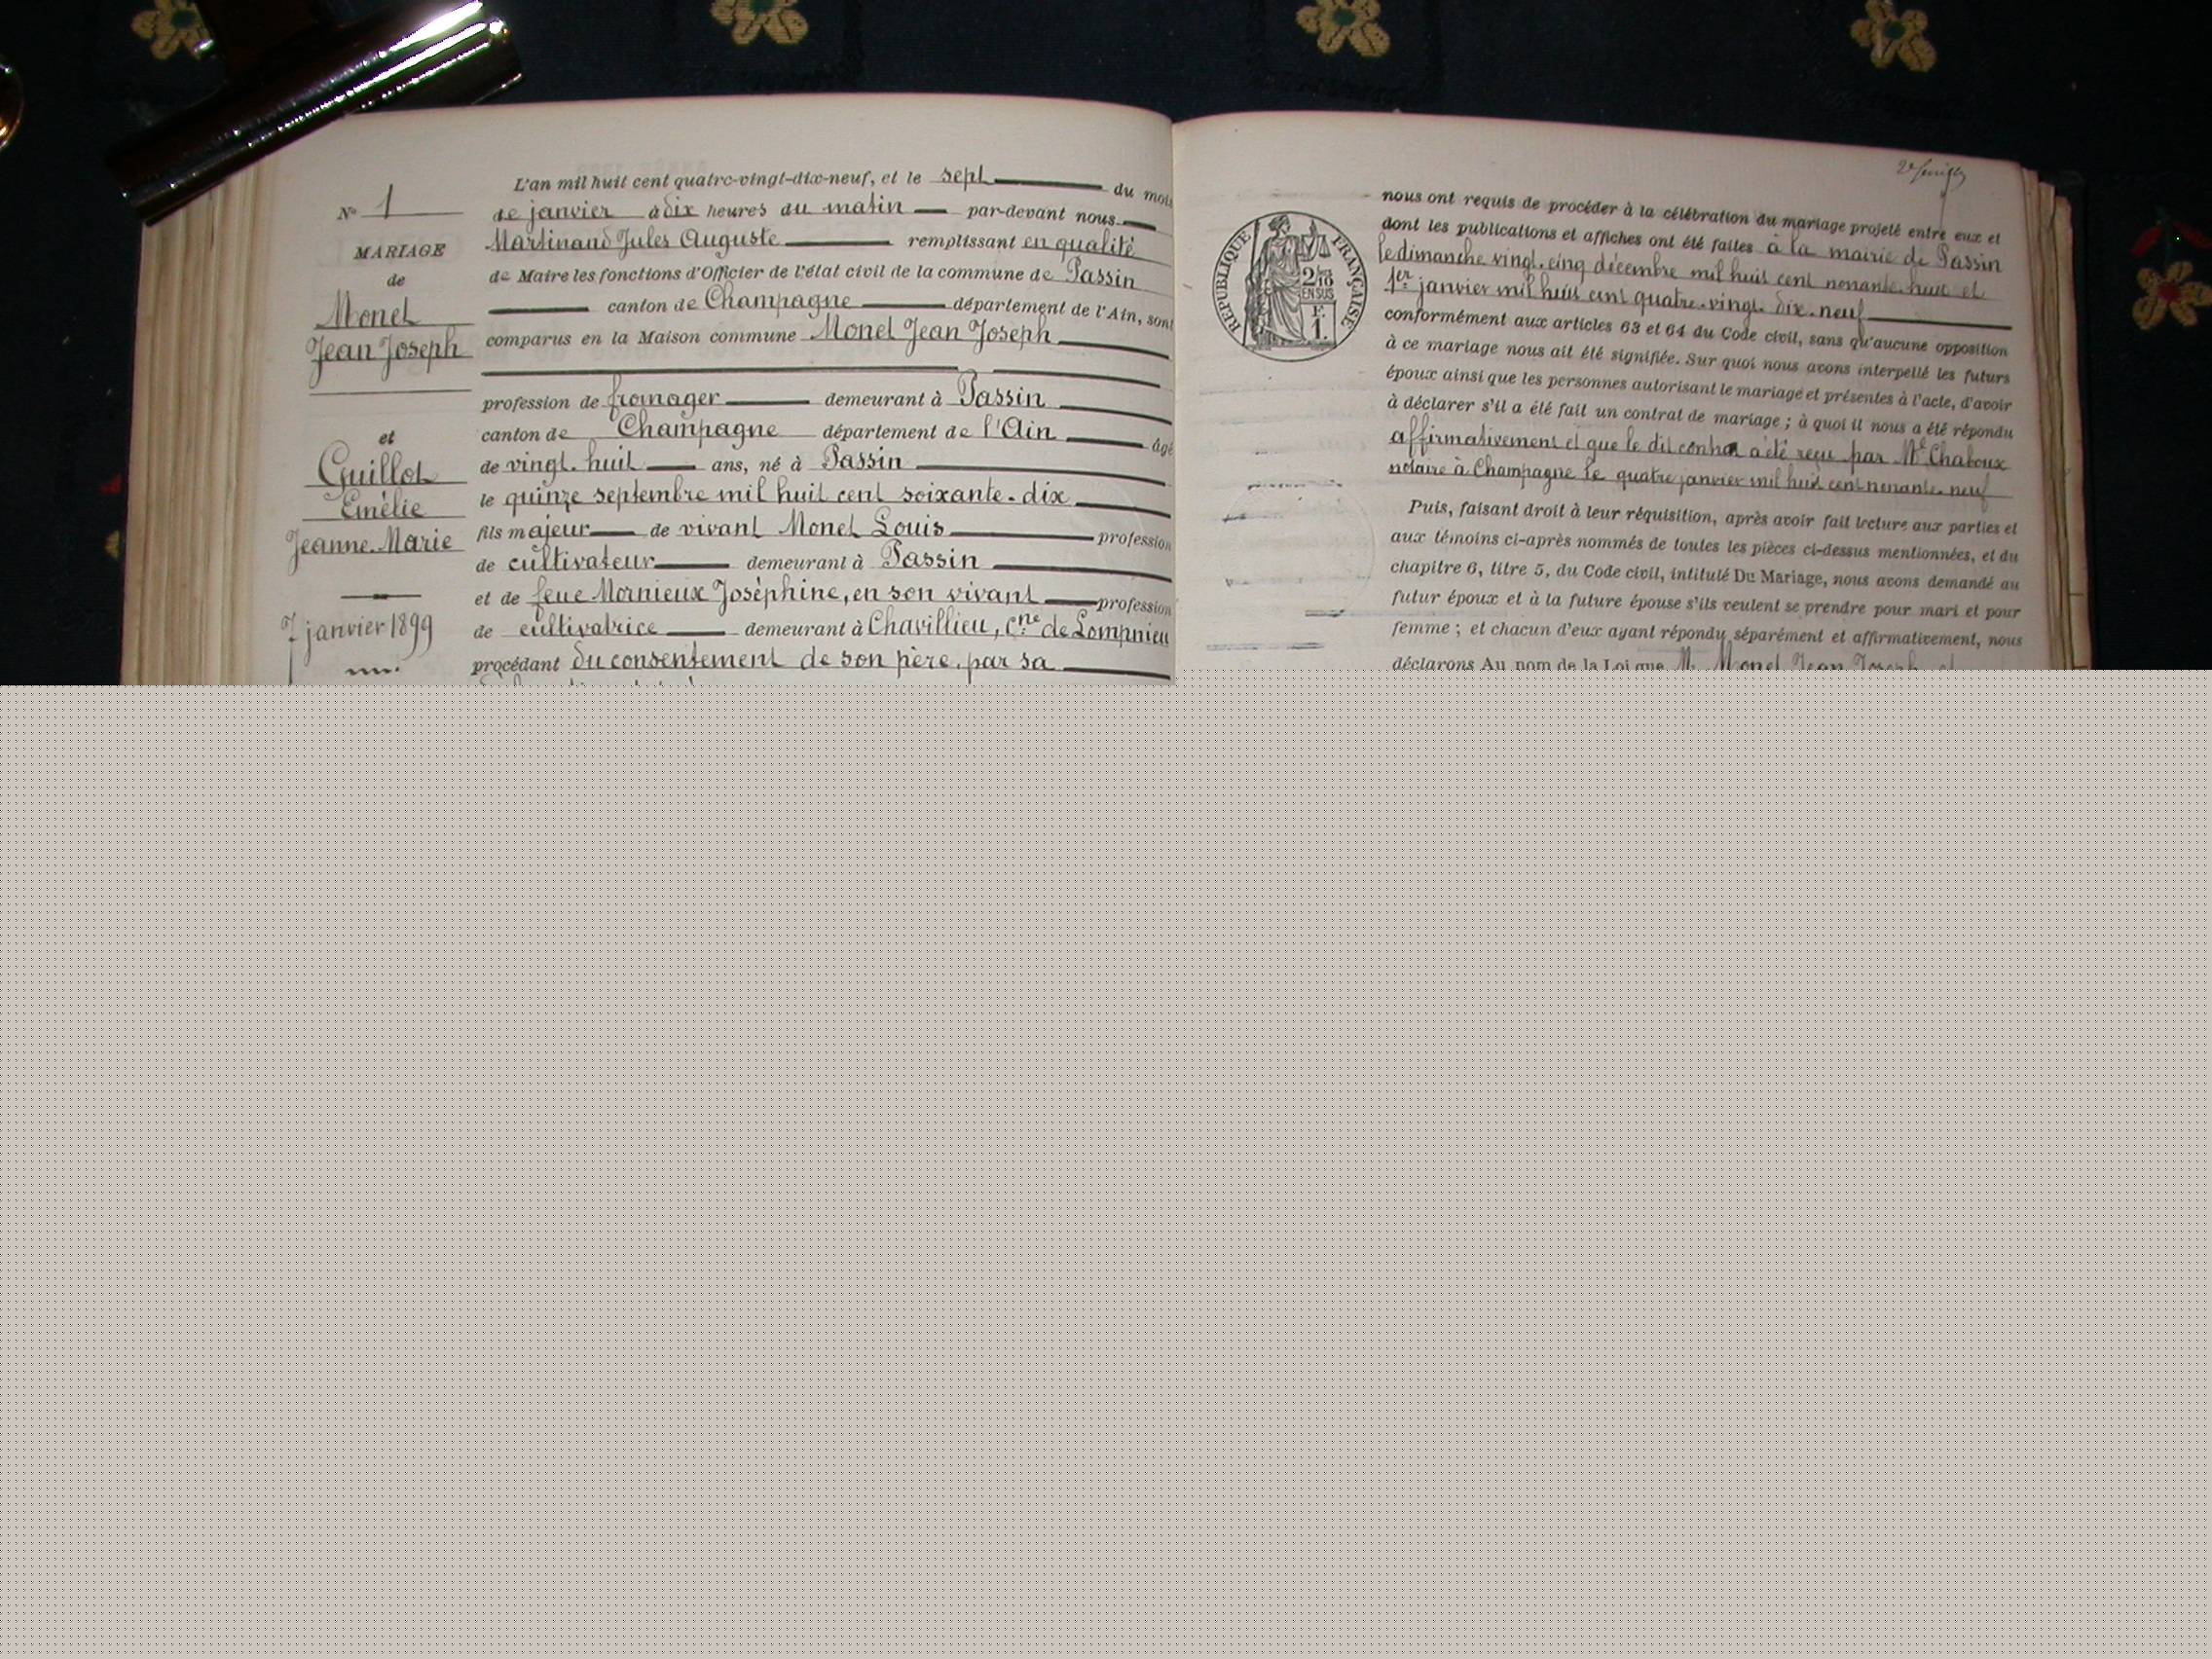 N° 1
MARIAGE
de
Monet
Jean Joseph
et
Guillot
Emélie
Jeanne Marie
7 janvier 1899
L'an mil huit cent quatre-vingt-dix-neuf, et le sept du mois
de janvier à dix heures du matin par-devant nous
Martinand Jules Auguste remplissant en qualité
de Maire les fonctions d'Officier de l'état civil de la commune de Passin
canton de Champagne département de l'Ain, sont
comparus en la Maison commune Monet Jean Joseph
profession de fromager demeurant à Passin
canton de Champagne département de l'Ain âgé
de vingt-huit ans, né à Passin
le quinze septembre mil huit cent soixante-dix
fils majeur de vivant Monet Louis profession
de cultivateur demeurant à Passin
et de feue Mornieux Joséphine, en son vivant profession
de cultivatrice demeurant à Chavillieu, cne de Lompnieu
procédant du consentement de son père, par sa
2e feuillet
RÉPUBLIQUE FRANÇAISE
2/10
EN SUS
F.
1.
nous ont requis de procéder à la célébration du mariage projeté entre eux et
dont les publications et affiches ont été faites à la mairie de Passin
le dimanche vingt-cinq décembre mil huit cent nonante-huit et
1er janvier mil huit cent quatre-vingt-dix-neuf
conformément aux articles 63 et 64 du Code civil, sans qu'aucune opposition
à ce mariage nous ait été signifiée. Sur quoi nous avons interpellé les futurs
époux ainsi que les personnes autorisant le mariage et présentes à l'acte, d'avoir
à déclarer s'il a été fait un contrat de mariage ; à quoi il nous a été répondu
affirmativement et que le dit contrat a été reçu par Me Chaboux
notaire à Champagne le quatre janvier mil huit cent nonante-neuf
Puis, faisant droit à leur réquisition, après avoir fait lecture aux parties et
aux témoins ci-après nommés de toutes les pièces ci-dessus mentionnées, et du
chapitre 6, titre 5, du Code civil, intitulé Du Mariage, nous avons demandé au
futur époux et à la future épouse s'ils veulent se prendre pour mari et pour
femme ; et chacun d'eux ayant répondu séparément et affirmativement, nous
déclarons Au nom de la Loi que M. Monet Jean Joseph et